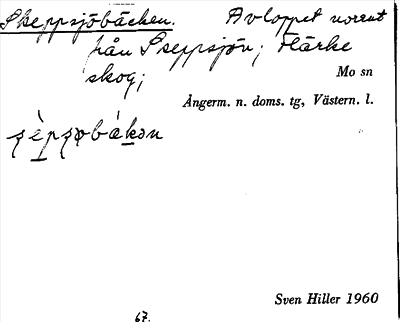 Skeppsjöbäcken. Avloppet norrut
från Skeppsjön; Härke
skog;
Mo sn
Ångerm. n. doms. tg, Västern. l.
Sven Hiller 1960
67.